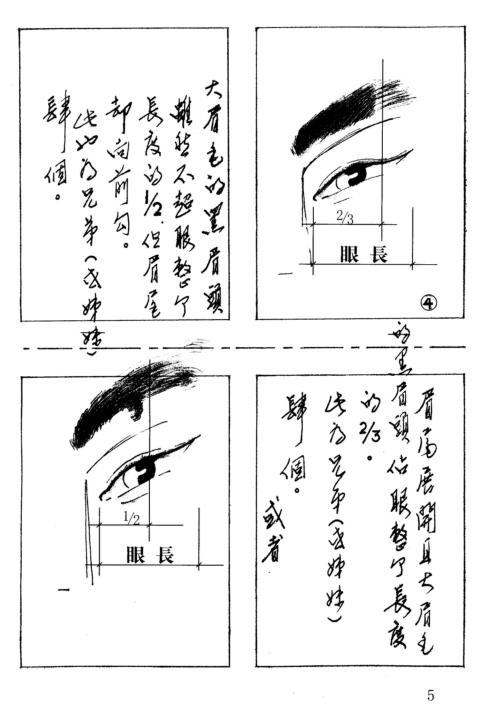 2/3
眼長
④
眉扇展開且大眉毛
的黑眉頭佔眼整个長度
的2/3。
此为兄弟(或姊妹)
肆個。
或者
大眉毛的黑眉頭
雖然不超眼整个
長度的1/2.但眉尾
却向前勾。
此也为兄弟(或姊妹)
肆個。
1/2
眼長
5